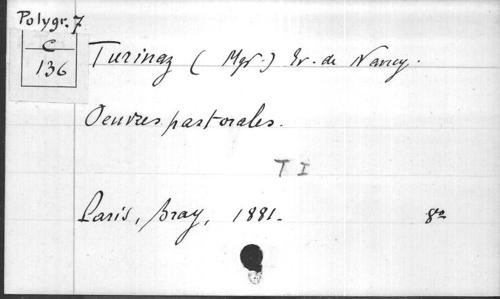 Polygr. 7
C
136
Turinaz (Mgr.) Ev. de Nancy.
Oeuvres pastorales.
T I
Paris, Bray, 1881.
8º